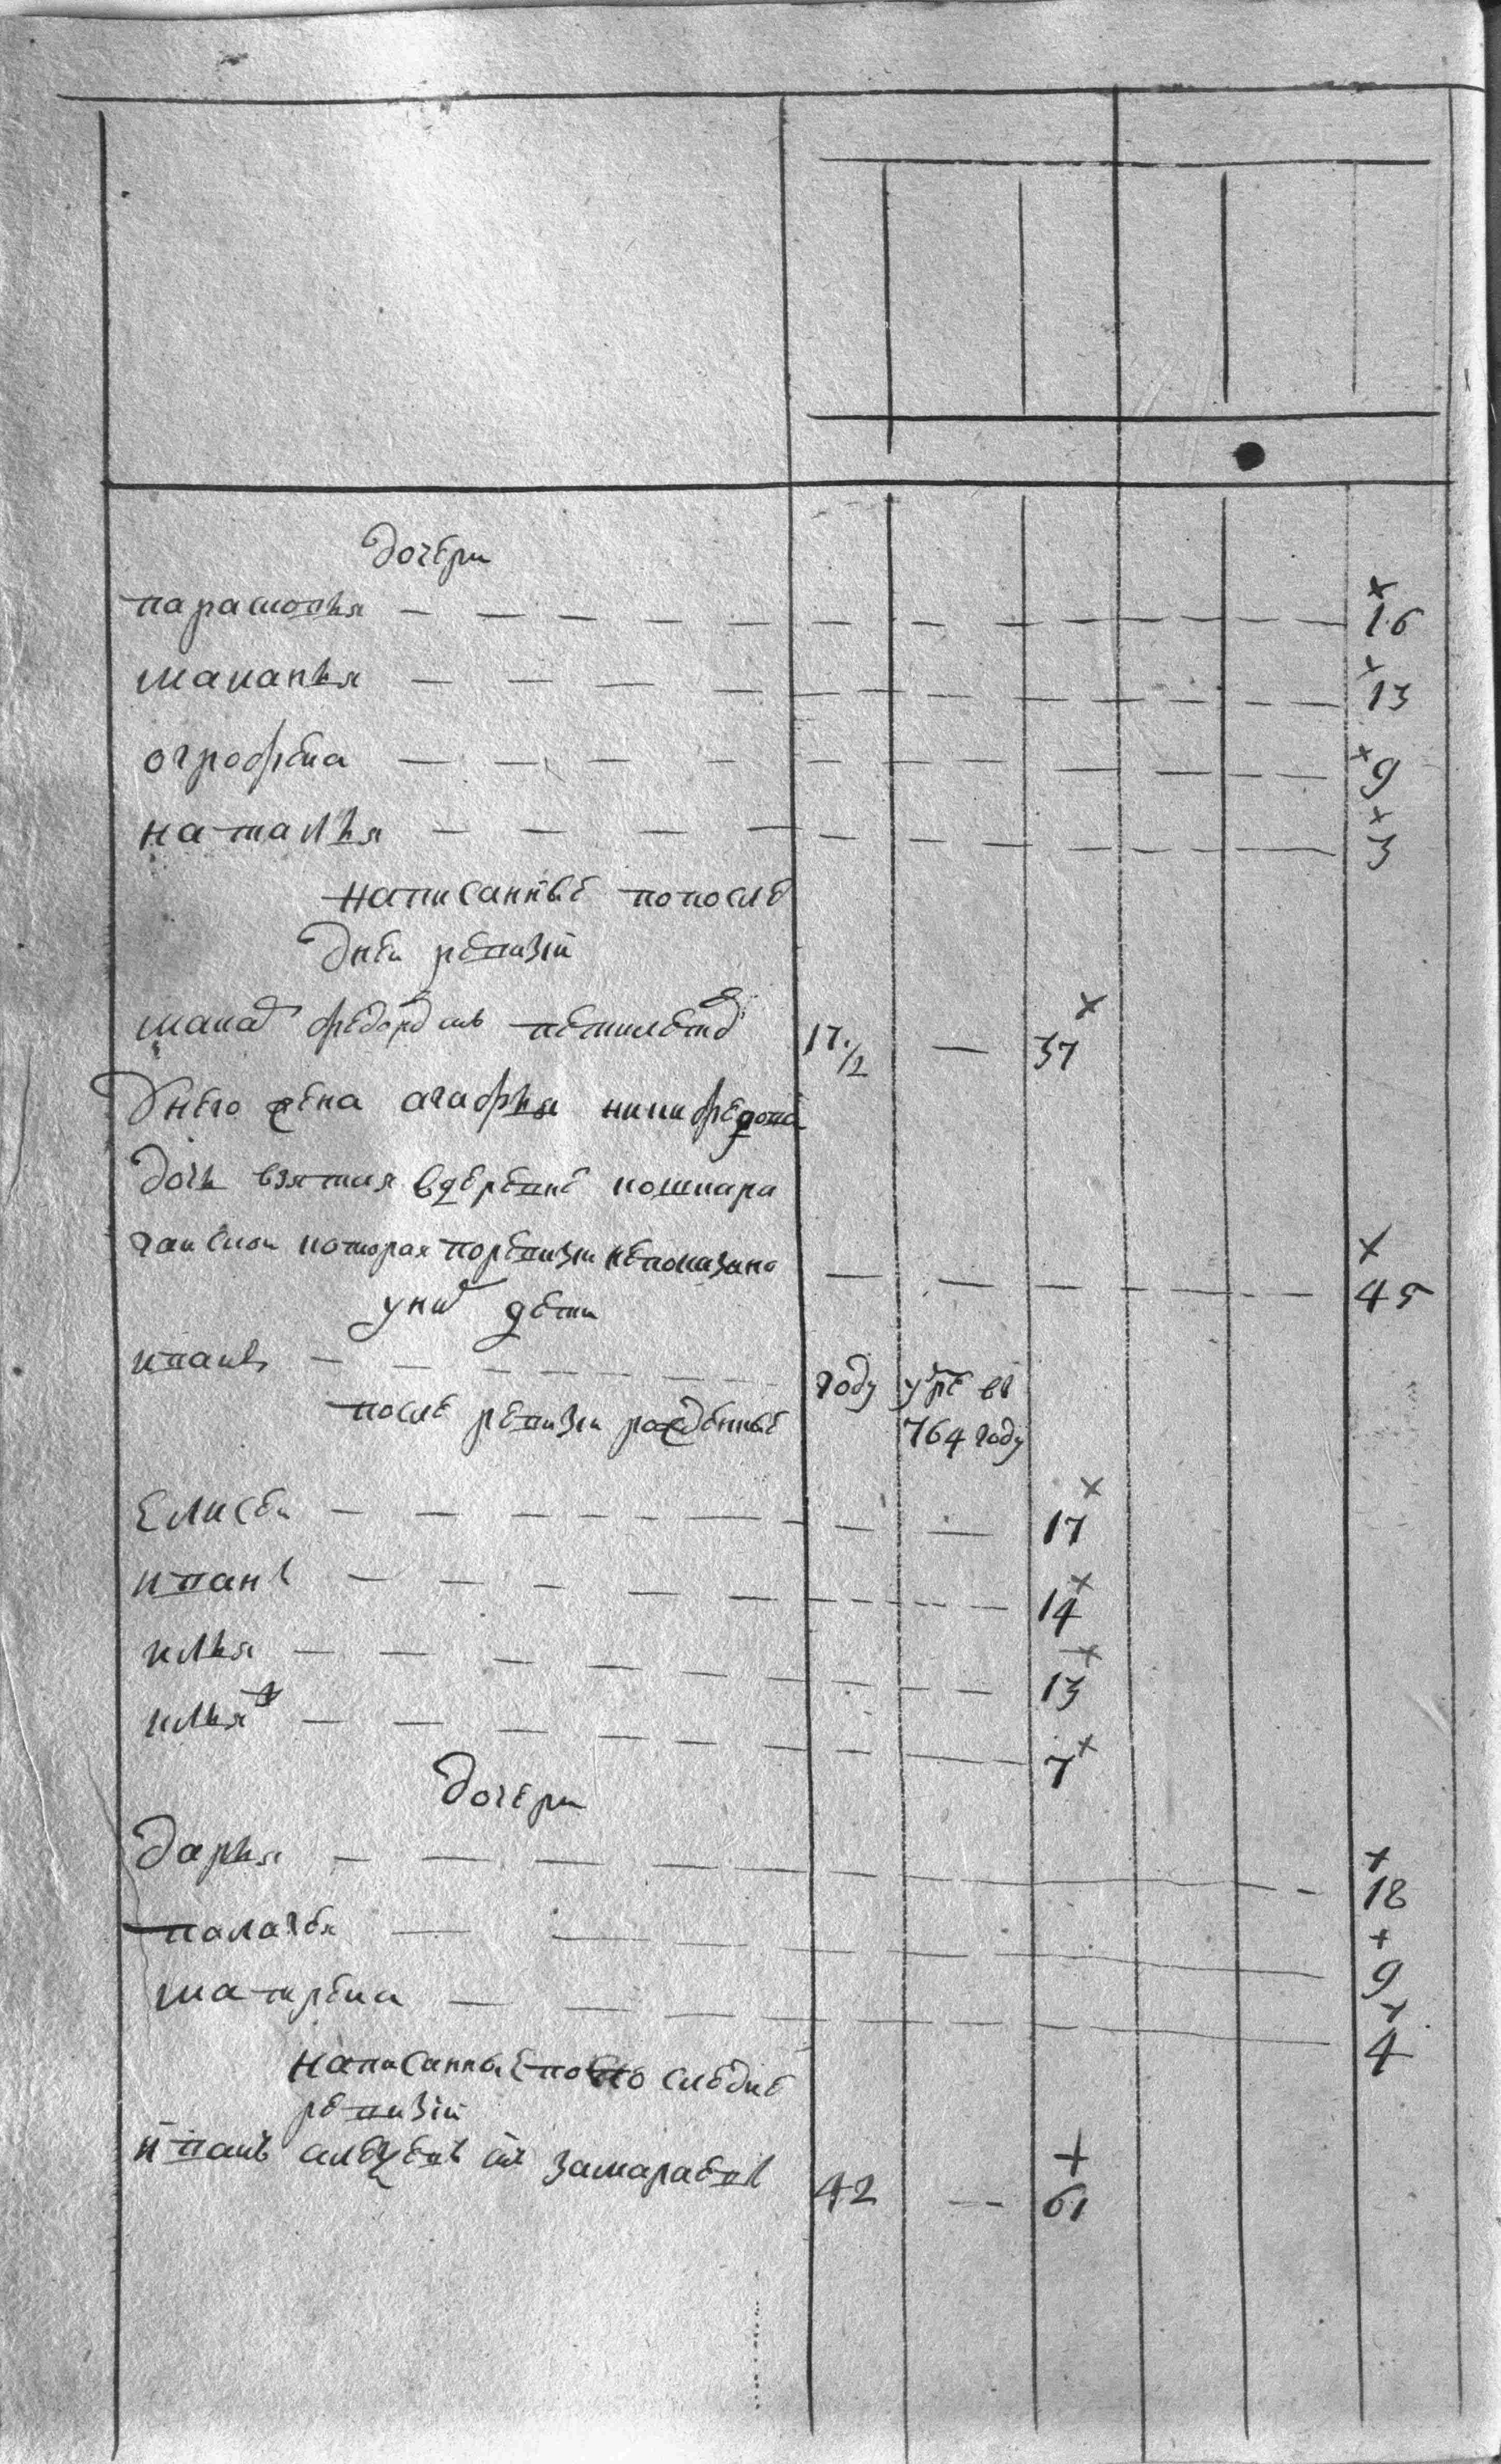 дочери
парасковья 16
маланья 13
огрофена 9
наталья 3
написанные по после
дней ревизии
федоров сын 17 1/2 37
у него жена агафья никифорова
дочь взятая в деревне
которая по ревизии не показана 45
у них дети
иванъ году умре въ
764 году
после ревизии рожденные
Елисей 17
иванъ 14
илья 13
илья 7
дочери
дарья 18
палагея 9
матрена 4
написанные по последне
ревизии
иванъ алексеевъ сынъ 42 61